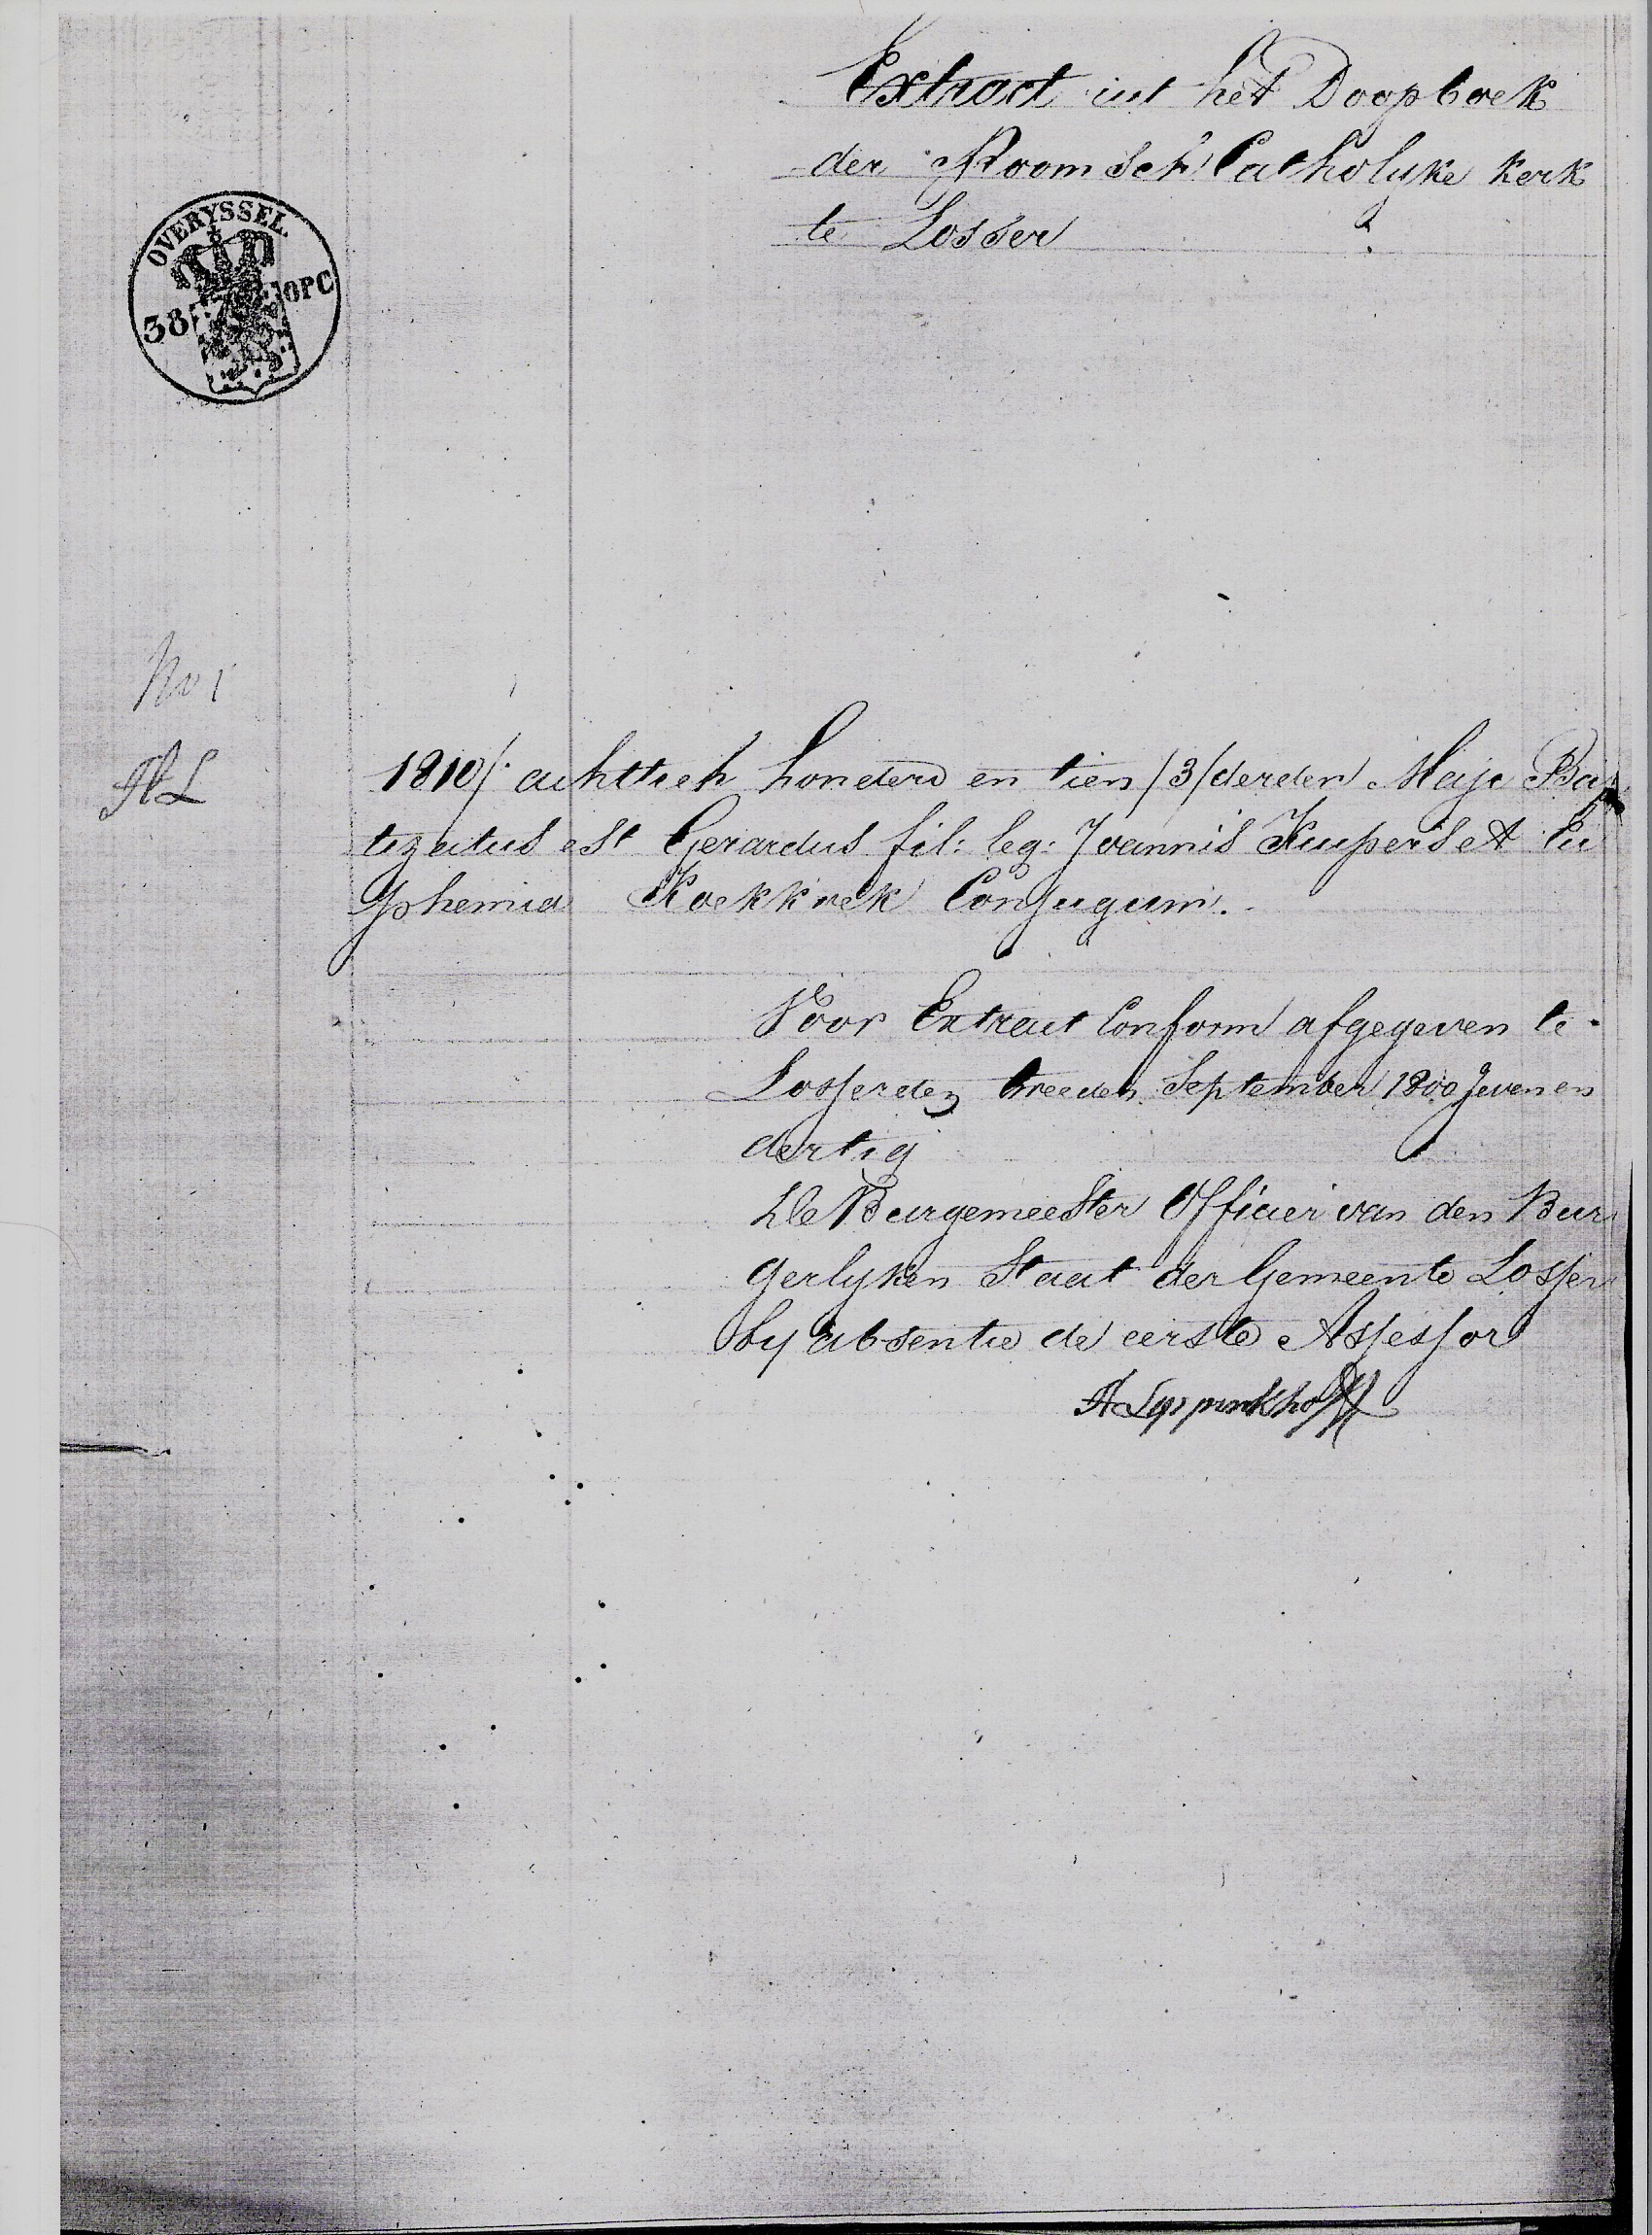 Extract uit het Doopboek
der Roomsch Catholyke kerk
te Losser
OVERYSSEL.
38 OPC
No 1
AL
1810/. achttieh honderd en tien /3/ derden Maje Bap
tizatus est Gerardus fil: leg: Joannis Kuipers et Eu
phemia Koekkoek Conjugum.
Voor Extract Conform afgegeven te
Losser den tweeden September 1800 zeven en
dertig
De Burgemeester Officier van den Bur
gerlyken Staat der Gemeente Losser
by absentie de eerste Assessor
A Leppinkhoff